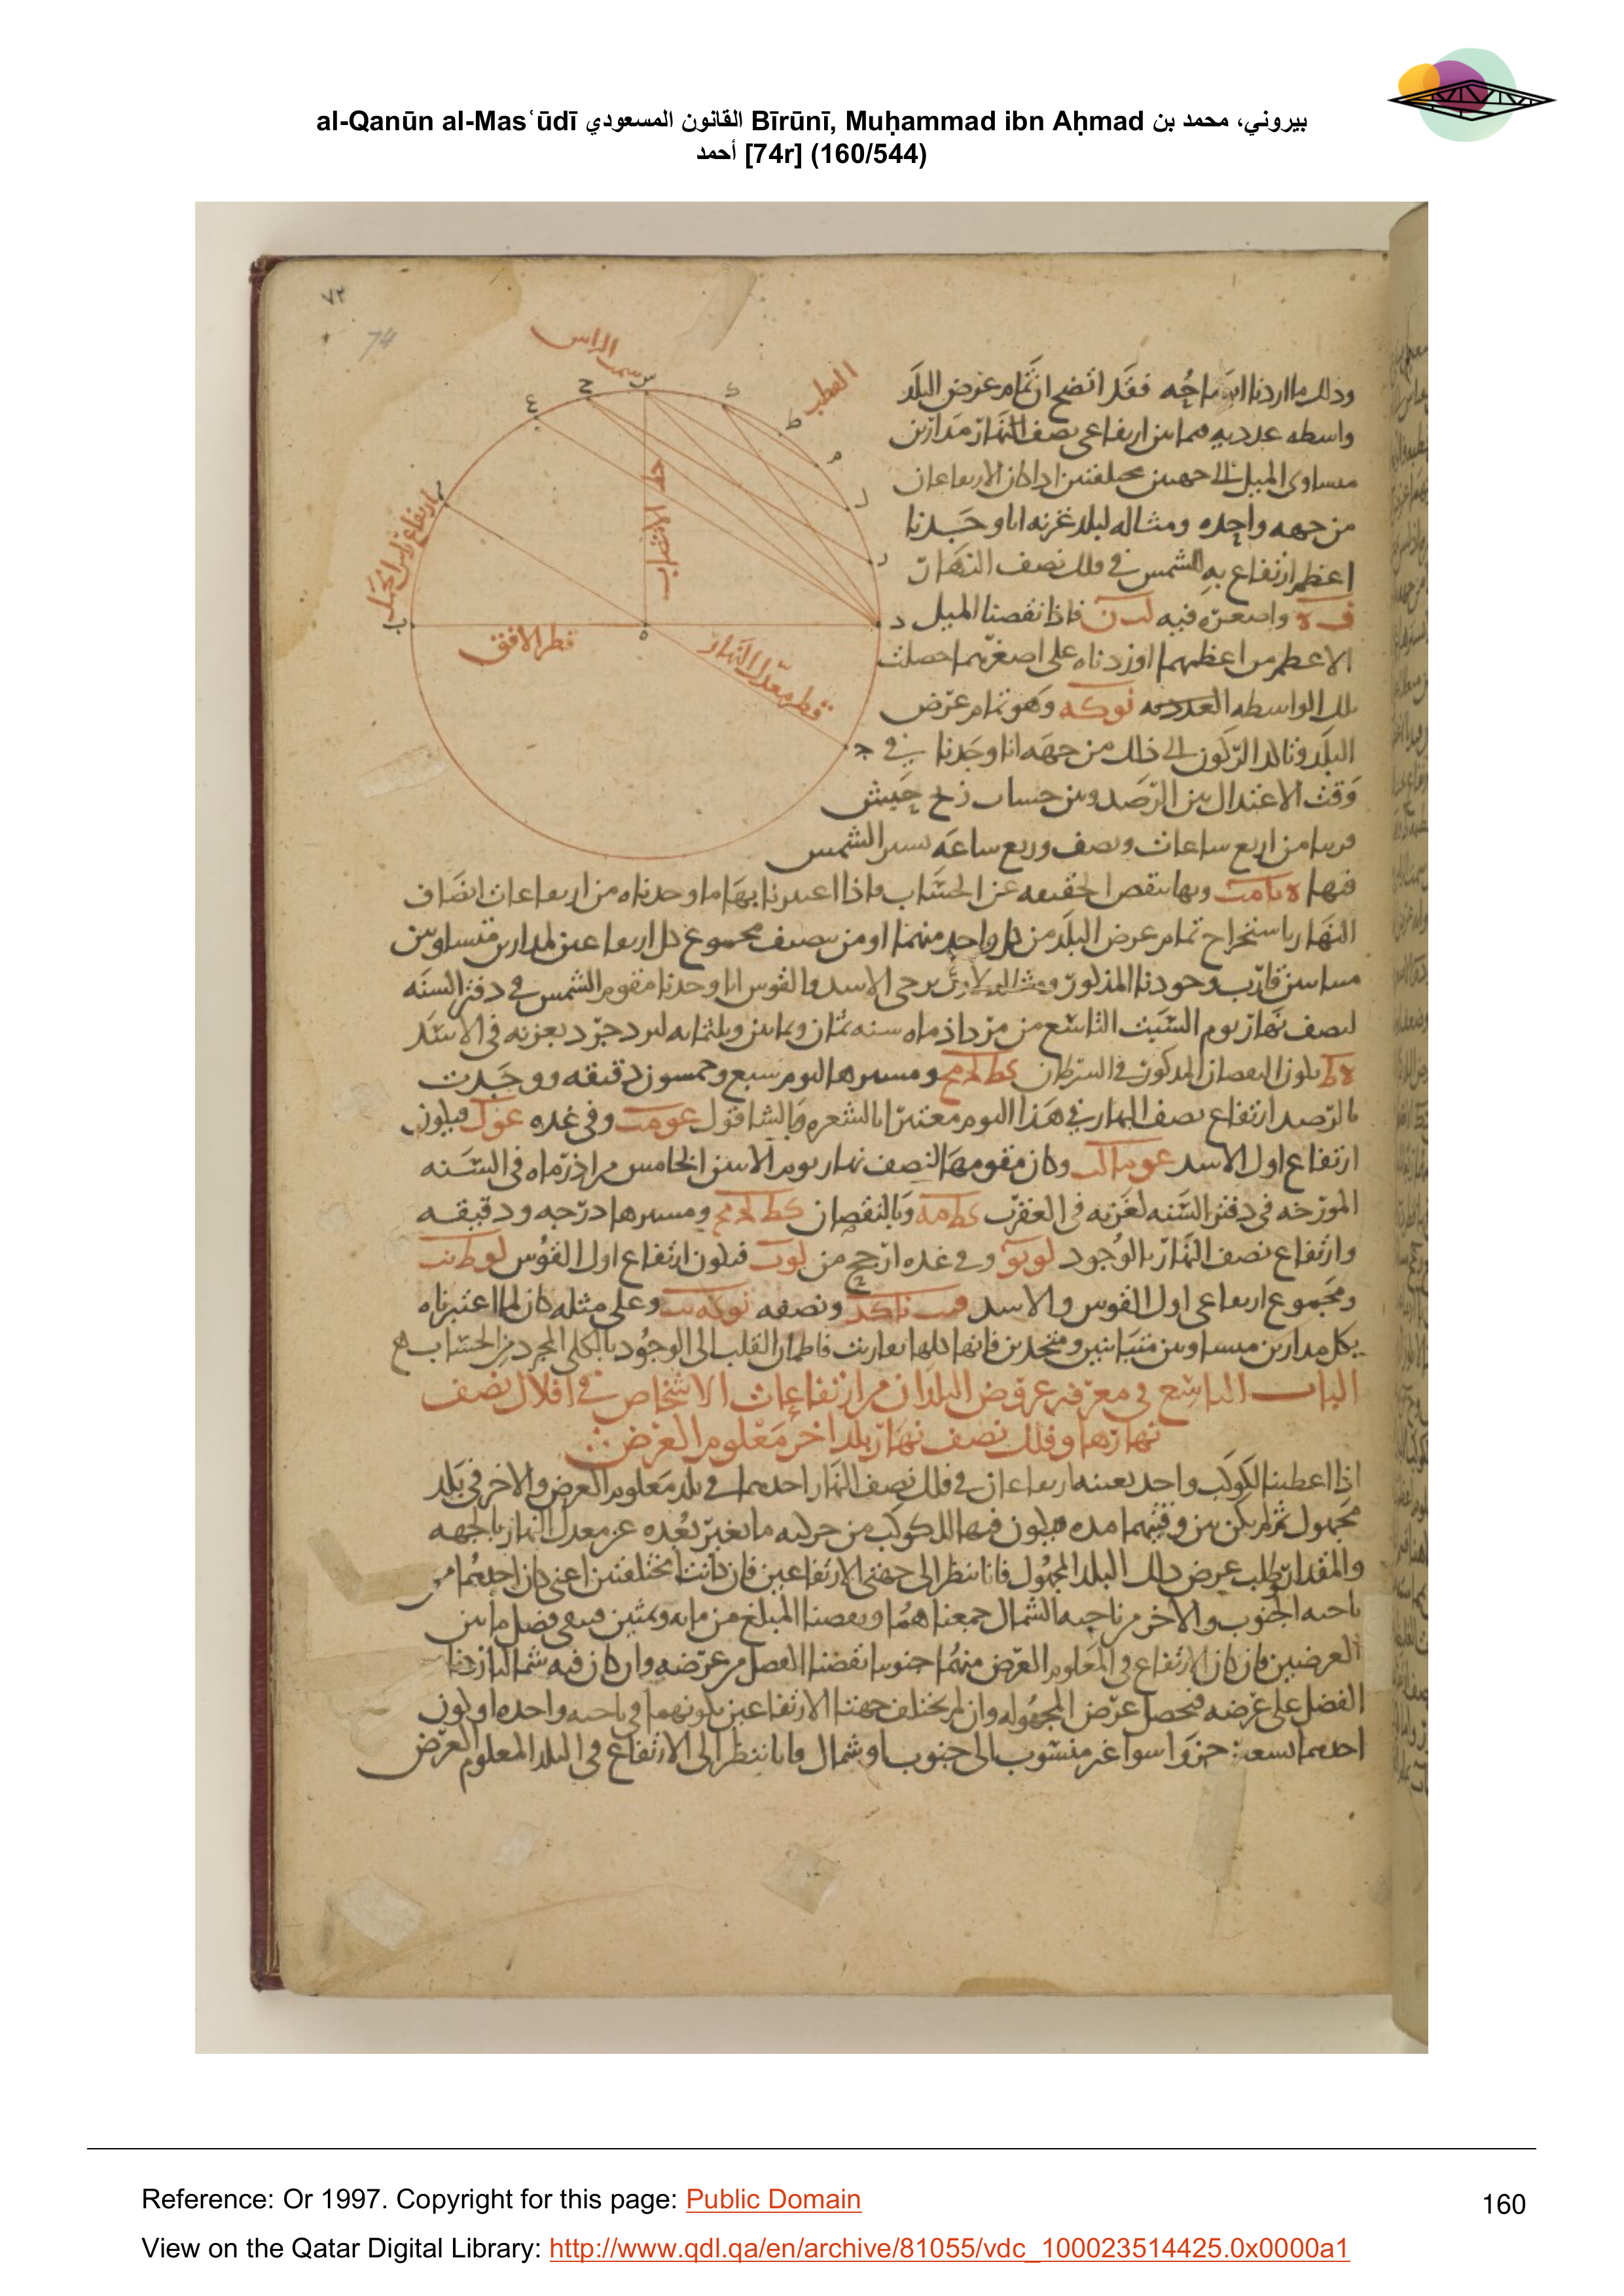 al-Qanūn al-Masʿūdī القانون المسعودي Bīrūnī, Muḥammad ibn Aḥmad بيروني، محمد بن
أحمد [74r] (160/544)
٧٣
74
سمت الراس
القطب
خط الانتصاب
قطر الافق
قطر معدل النهار
ارتفاع راس الحمل
وذلك ما اردنا فقد اتضح ان تمام عرض البلد
واسطه عدديه فيما بين ارتفاعى نصف النهار مدارين
متساوى الميل الى جهتين مختلفتين اذا كان الارتفاعان
من جهه واحده ومثاله لبلد غزنه انا وجدنا
اعظم ارتفاع الشمس فى فلك نصف النهار
واصغره فيه فاذا نقصنا الميل
الاعظم من اعظمهما او زدناه على اصغرهما حصلت
تلك الواسطه العدديه نو كه وهو تمام عرض
البلد الركون الى ذلك من جهه انا وجدنا فى
وقت الاعتدال بين الرصد وبين حساب زيج حبش
قريبا من اربع ساعات ونصف وربع ساعه تسير الشمس
فيها وبها ينقص الحقيقه عن الحساب فاذا اعتبرنا بها ما وجدناه من ارتفاعات انصاف
النهار باستخراج تمام عرض البلد من كل واحد منهما او من نصف مجموع كل ارتفاعين لمدارين متساويين
متباينين قارب وجودنا المذكور برجى الاسد والقوس انا وجدنا مقوم الشمس فى دفتر السنه
لنصف نهار يوم السبت التاسع من مرداذ ماه سنه ثمان وثمانين وثلثمايه ليزدجرد بغزنه فى الاسد
يكون النقصان المذكور فى السرطان ومسيرها اليوم سبع وخمسون دقيقه ووجدت
بالرصد ارتفاع نصف النهار فى هذا اليوم معتبرا بالشعره وبالشاقول وفى غده فيكون
ارتفاع اول الاسد وكان مقومها لنصف نهار يوم الاثنين الخامس من اذرماه فى السنه
المورخه فى دفتر السنه لغزنه فى العقرب كط مه وبالنقصان ومسيرها درجه ودقيقه
وارتفاع نصف النهار بالوجود وفى غده ارجح من فيكون ارتفاع اول القوس
ومجموع ارتفاعى اول القوس والاسد ونصفه وعلى مثله كان لما اعتبرناه
بكل مدارين متساويين متباينين ومتحدين فانها كلها تقاربت فاطمان القلب الى الوجود بالكلى المجرد من الحساب
الباب التاسع فى معرفه عروض البلدان من ارتفاعات الاشخاص فى افلاك نصف
نهارها وفلك نصف نهار بلد اخر معلوم العرض
اذا اعطينا لكوكب واحد بعينه ارتفاعان فى فلك نصف النهار احدهما فى بلد معلوم العرض والاخر فى بلد
مجهول ثم لم يكن بين وقتيهما مده يكون فيها للكوكب من حركته ما يغير بعده عن معدل النهار بالجهه
والمقدار وطلب عرض ذلك البلد المجهول فانا ننظر الى جهتى الارتفاعين فان كانتا مختلفتين اعنى كان احدهما من
ناحيه الجنوب والاخر من ناحيه الشمال جمعناهما ونقصنا المبلغ من مايه وثمنين فيبقى فضل ما بين
العرضين فان كان الارتفاع فى المعلوم العرض منهما جنوبيا نقصنا الفضل من عرضه وان كان فيه شماليا زدنا
الفضل على عرضه فيحصل عرض المجهوله وان لم تختلف جهتا الارتفاعين بكونهما فى ناحيه واحده او لكون
احدهما تسعين جزوا سوا غير منسوب الى جنوب او شمال فانا ننظر الى الارتفاع فى البلد المعلوم العرض
Reference: Or 1997. Copyright for this page: Public Domain
160
View on the Qatar Digital Library: http://www.qdl.qa/en/archive/81055/vdc_100023514425.0x0000a1